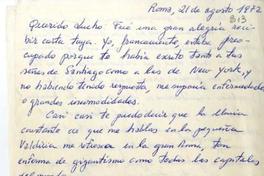 Roma, 21 de agosto 1972
813
Querido Lucho: Fué una gran alegría reci-
bir carta tuya. Yo, francamente, estaba preo-
cupado porque te había escrito tanto a tus
señas de Santiago como a las de New York, y
no habiendo tenido respuesta, me suponía enfermedades
o grandes incomodidades.
Casi casi te puedo decir que la lluvia
constante de que me hablas en la pequeña
Valdivia me refresca en la gran Roma, tan
enferma de gigantismo como todas las capitales
del mundo